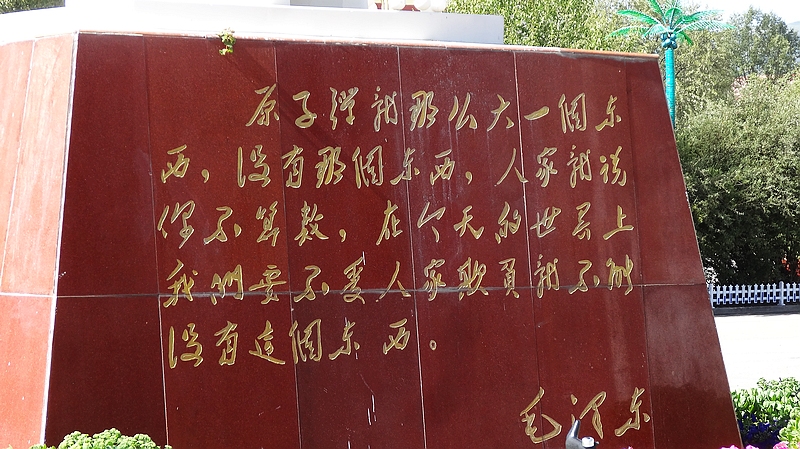 原子弹就那么大一個东
西，没有那個东西，人家就说
你不算数，在今天的世界上
我們要不受人家欺負就不能
没有这個东西。
毛泽东